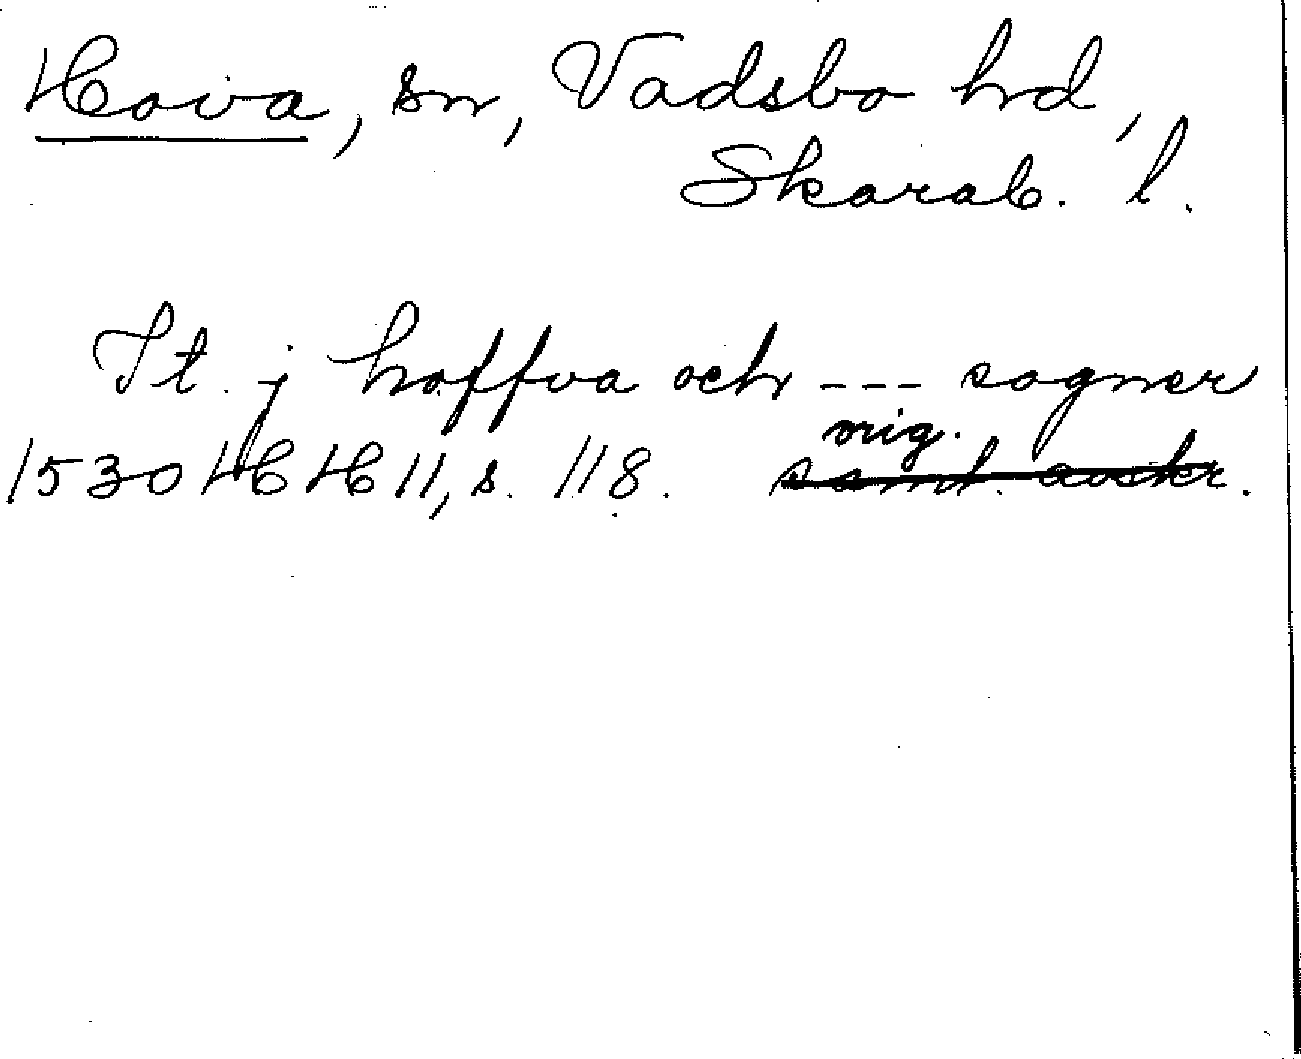 Hova, sn, Vadsbo hd,
Skarab. l.
It. j hoffva och --- sogner
orig.
1530 HH 11, s. 118. samt. avskr.